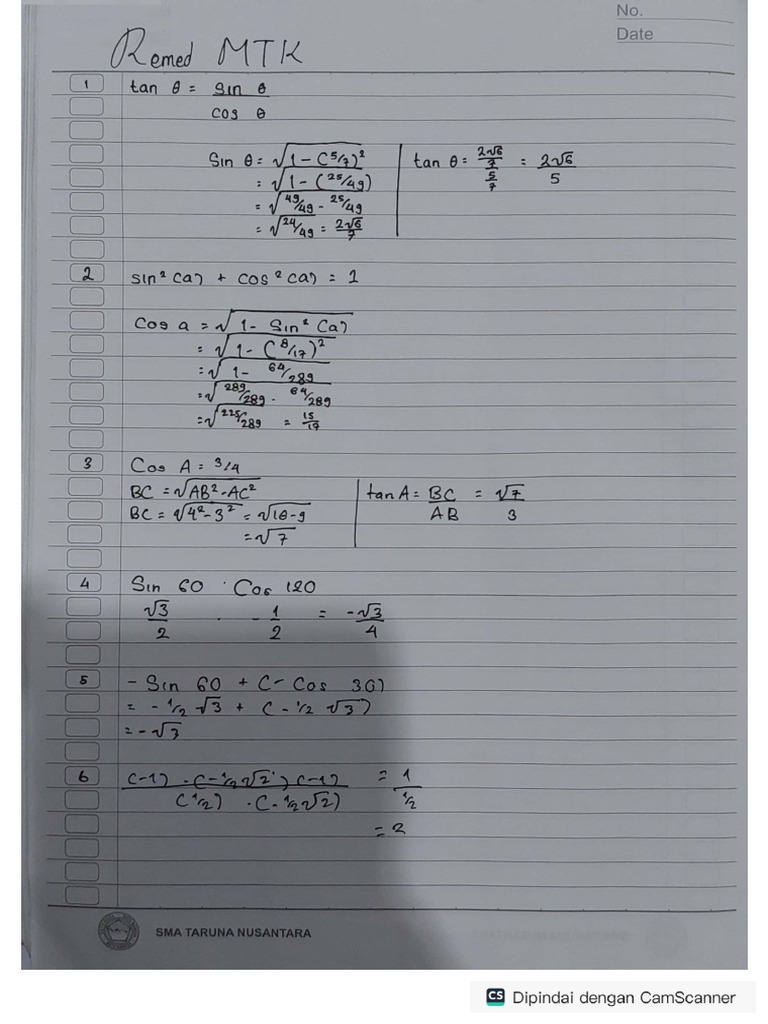 No.
Date
Remed MTK
1 tan θ = sin θ / cos θ
Sin θ = √1 - (5/7)²
= √1 - (25/49)
= √49/49 - 25/49
= √24/49 = 2√6/7
tan θ = 2√6/7 / 5/7 = 2√6/5
2 sin² (a) + cos² (a) = 1
Cos a = √1 - Sin² (a)
= √1 - (8/17)²
= √1 - 64/289
= √289/289 - 64/289
= √225/289 = 15/17
3 Cos A = 3/4
BC = √AB² - AC²
BC = √4² - 3² = √16 - 9
= √7
tan A = BC/AB = √7/3
4 Sin 60 · Cos 120
√3/2 · - 1/2 = -√3/4
5 - Sin 60 + (- Cos 30)
= - 1/2 √3 + (- 1/2 √3)
= - √3
6 (-1) · (- 1/2 √2) (-1) / (1/2) · (- 1/2 √2) = 1 / 1/2
= 2
SMA TARUNA NUSANTARA
CS Dipindai dengan CamScanner